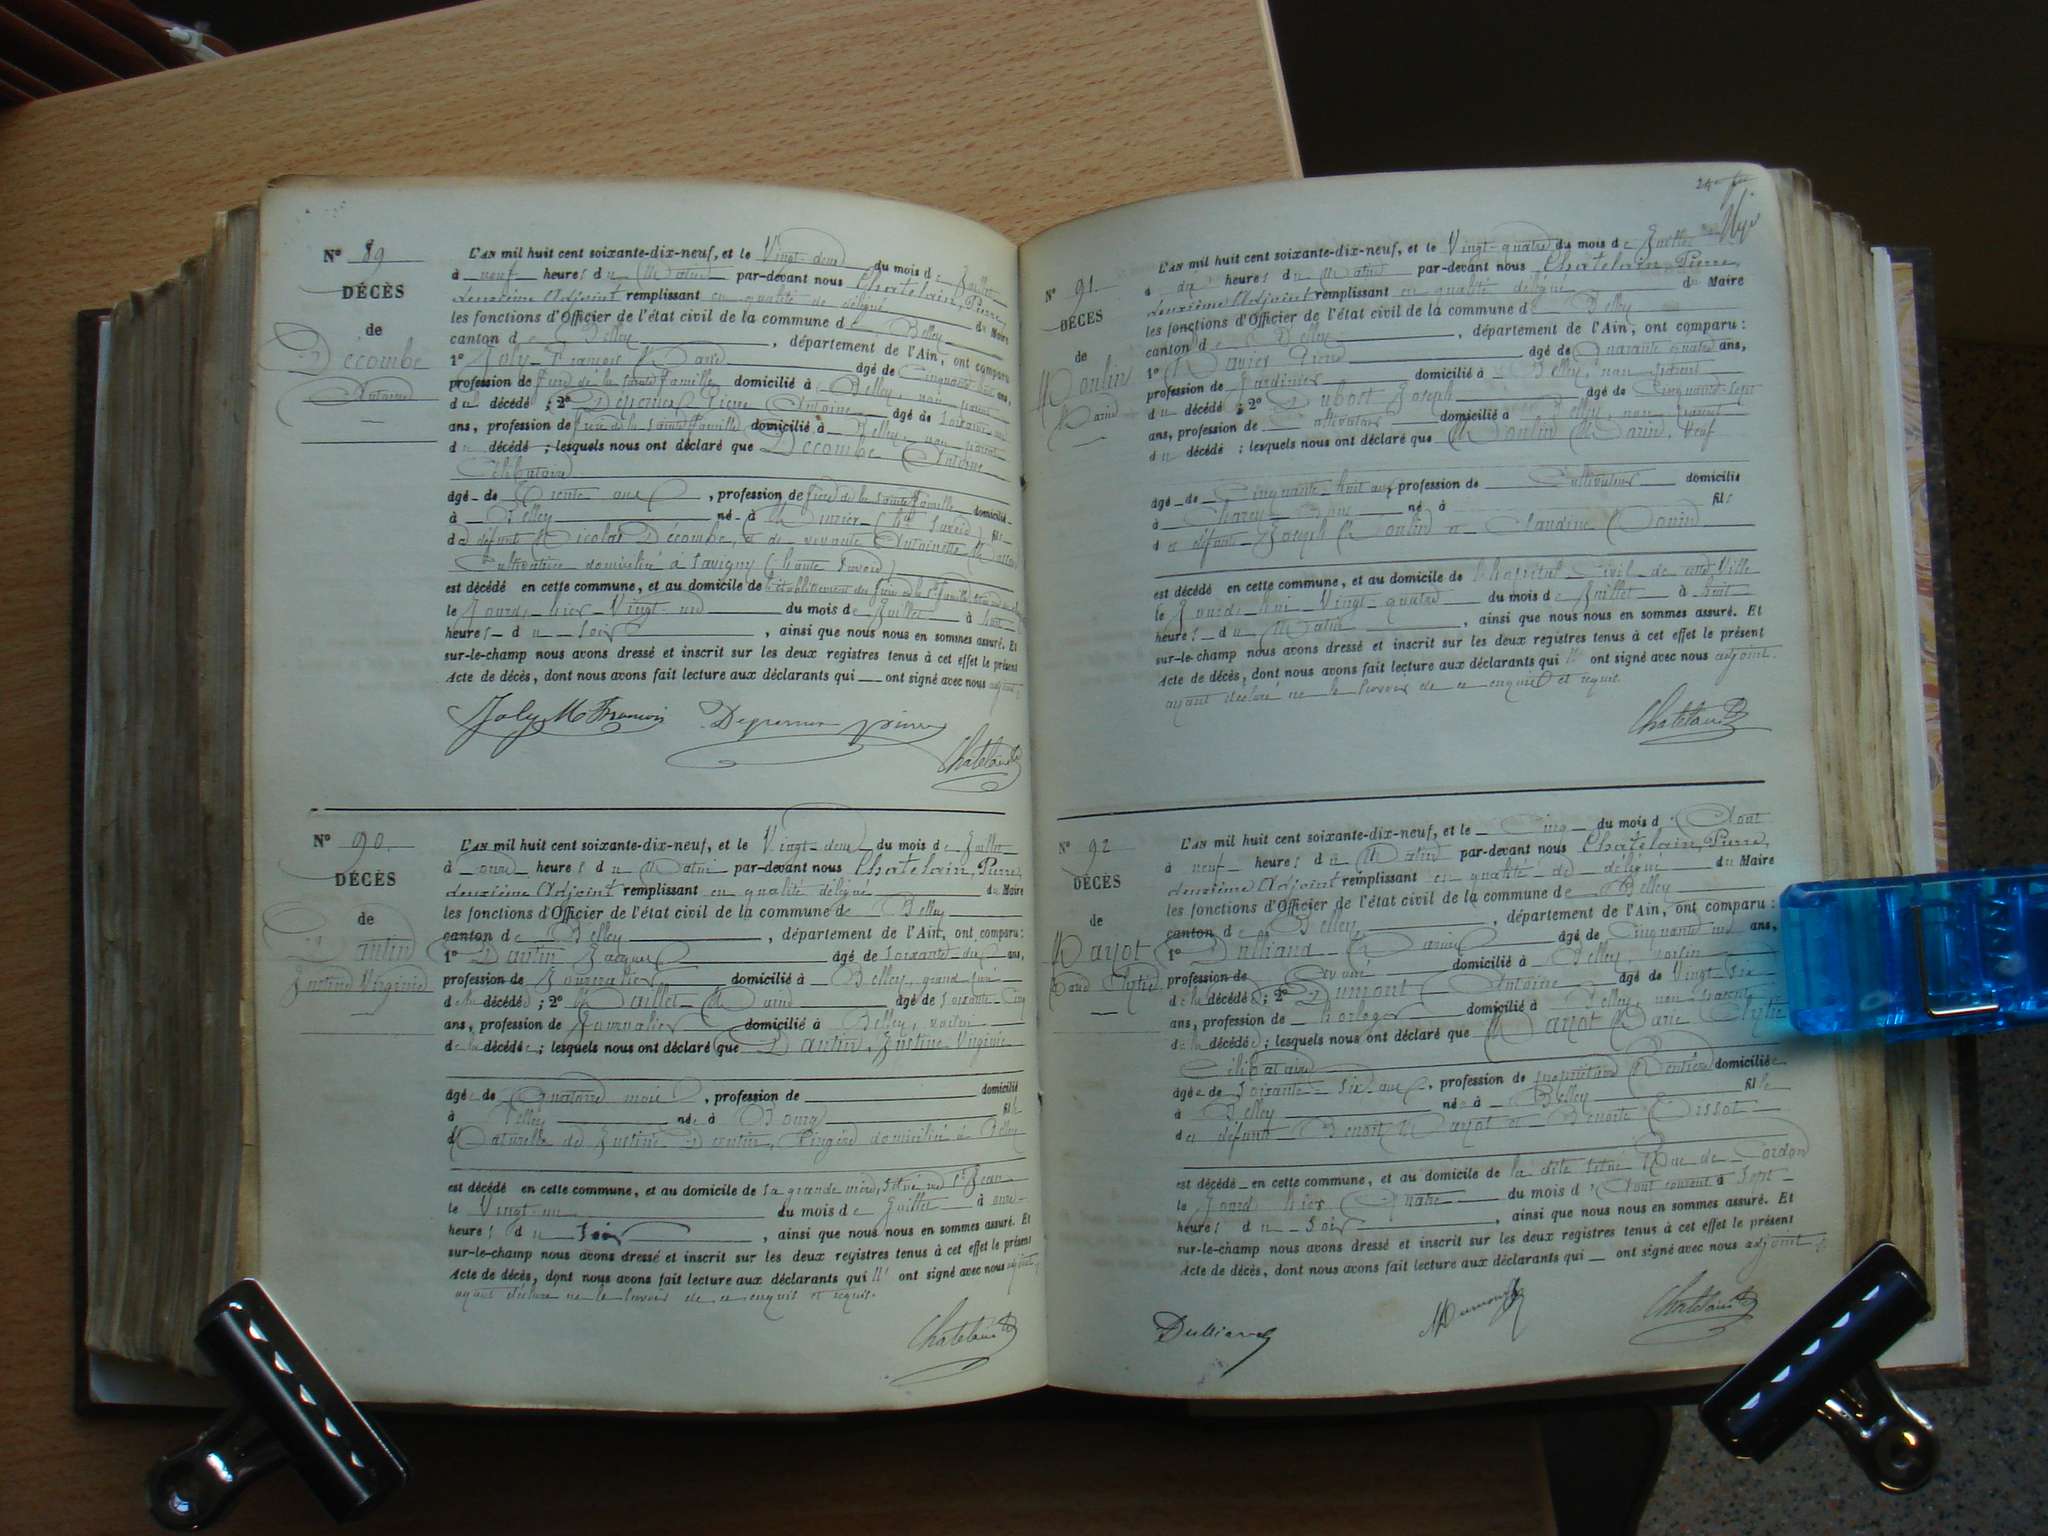 N° 89
DÉCÈS
de
Décombe
Antoine
L'AN mil huit cent soixante-dix-neuf, et le Vingt-deux du mois de Juillet
à neuf heures du Matin par-devant nous Chatelain, Pierre,
deuxième Adjoint remplissant en qualité de délégué du Maire
les fonctions d'Officier de l'état civil de la commune de Belley
canton de Belley, département de l'Ain, ont comparu
1° Joly François Marie âgé de Cinquante ans,
profession de frère de la sainte famille domicilié à Belley, non parent
du décédé ; 2° Depernex Pierre Antoine âgé de soixante
ans, profession de frère de la Sainte famille domicilié à Belley non parent
du décédé ; lesquels nous ont déclaré que Décombe Antoine
Célibataire
âgé de Trente ans, profession de frère de la sainte famille domicilié
à Belley né à fils
de défunt Nicolas Décombe, et de vivante Antoinette
Cultivatrice domiciliée à Savigny (haute Savoie)
est décédé en cette commune, et au domicile de l'établissement des frères de la Ste famille
le Jourd'hier Vingt-un du mois de Juillet à huit
heures du soir, ainsi que nous nous en sommes assuré. Et
sur-le-champ nous avons dressé et inscrit sur les deux registres tenus à cet effet le présent
Acte de décès, dont nous avons fait lecture aux déclarants qui ont signé avec nous adjoint
Joly M François Depernex pierre
Chatelain
N° 90
DÉCÈS
de
Dantin
Justine Virginie
L'AN mil huit cent soixante-dix-neuf, et le Vingt-deux du mois de Juillet
à onze heures du Matin par-devant nous Chatelain, Pierre,
deuxième Adjoint remplissant en qualité délégué du Maire
les fonctions d'Officier de l'état civil de la commune de Belley
canton de Belley, département de l'Ain, ont comparu :
1° Dantin Jacques âgé de soixante dix ans,
profession de Journalier domicilié à Belley, grand père
de la décédée ; 2° Maillet Marie âgé de soixante-cinq
ans, profession de Journalier domicilié à Belley, voisin
de la décédée ; lesquels nous ont déclaré que Dantin, Justine Virginie
âgée de Quatorze mois, profession de domicilié
à Belley née à Bourg fille
Naturelle de Justine Dantin, Lingère domiciliée à Belley
est décédé en cette commune, et au domicile de sa grande mère, situé rue St Jean
le Vingt-un du mois de Juillet à onze
heures du soir, ainsi que nous nous en sommes assuré. Et
sur-le-champ nous avons dressé et inscrit sur les deux registres tenus à cet effet le présent
Acte de décès, dont nous avons fait lecture aux déclarants qui n' ont signé avec nous adjoint,
ayant déclaré ne le savoir de ce enquis et requis.
Chatelain
N° 91
DÉCÈS
de
Moulin
Marin
L'AN mil huit cent soixante-dix-neuf, et le Vingt-quatre du mois de Juillet
à dix heures du Matin par-devant nous Chatelain, Pierre,
deuxième Adjoint remplissant en qualité délégué du Maire
les fonctions d'Officier de l'état civil de la commune de Belley
canton de Belley, département de l'Ain, ont comparu :
1° Pierre âgé de Quarante quatre ans,
profession de Jardinier domicilié à Belley, non parent
du décédé ; 2° Dubost Joseph âgé de Cinquante-sept
ans, profession de Cultivateur domicilié à Belley, non parent
du décédé ; lesquels nous ont déclaré que Moulin Marin, Veuf
âgé de Cinquante-huit ans, profession de Cultivateur domicilié
à né à fils
de défunts Joseph Moulin et Claudine
est décédé en cette commune, et au domicile de l'hôpital Civil de cette Ville
le Jourd'hui Vingt-quatre du mois de Juillet à huit
heures du Matin, ainsi que nous nous en sommes assuré. Et
sur-le-champ nous avons dressé et inscrit sur les deux registres tenus à cet effet le présent
Acte de décès, dont nous avons fait lecture aux déclarants qui n' ont signé avec nous adjoint.
ayant déclaré ne le savoir de ce enquis et requis.
Chatelain
N° 92
DÉCÈS
de
Mayot
Marie Clytie
L'AN mil huit cent soixante-dix-neuf, et le Cinq du mois d'Août
à neuf heures du Matin par-devant nous Chatelain, Pierre,
deuxième Adjoint remplissant en qualité de délégué du Maire
les fonctions d'Officier de l'état civil de la commune de Belley
canton de Belley, département de l'Ain, ont comparu :
1° Dulliand âgé de Cinquante ans,
profession de Avoué domicilié à Belley, voisin
de la décédée ; 2° Dumont Antoine âgé de Vingt-six
ans, profession de horloger domicilié à Belley, non parent
de la décédée ; lesquels nous ont déclaré que Mayot Marie Clytie
Célibataire
âgée de Soixante-six ans, profession de propriétaire Rentière domiciliée
à Belley née à Belley fille
de défunts Benoît Mayot et Benoite Tissot
est décédé en cette commune, et au domicile de la dite situé Rue de Cordon
le Jourd'hier Quatre du mois d'Août courant à Sept
heures du Soir, ainsi que nous nous en sommes assuré. Et
sur-le-champ nous avons dressé et inscrit sur les deux registres tenus à cet effet le présent
Acte de décès, dont nous avons fait lecture aux déclarants qui ont signé avec nous adjoint
Dulliand Dumont Chatelain